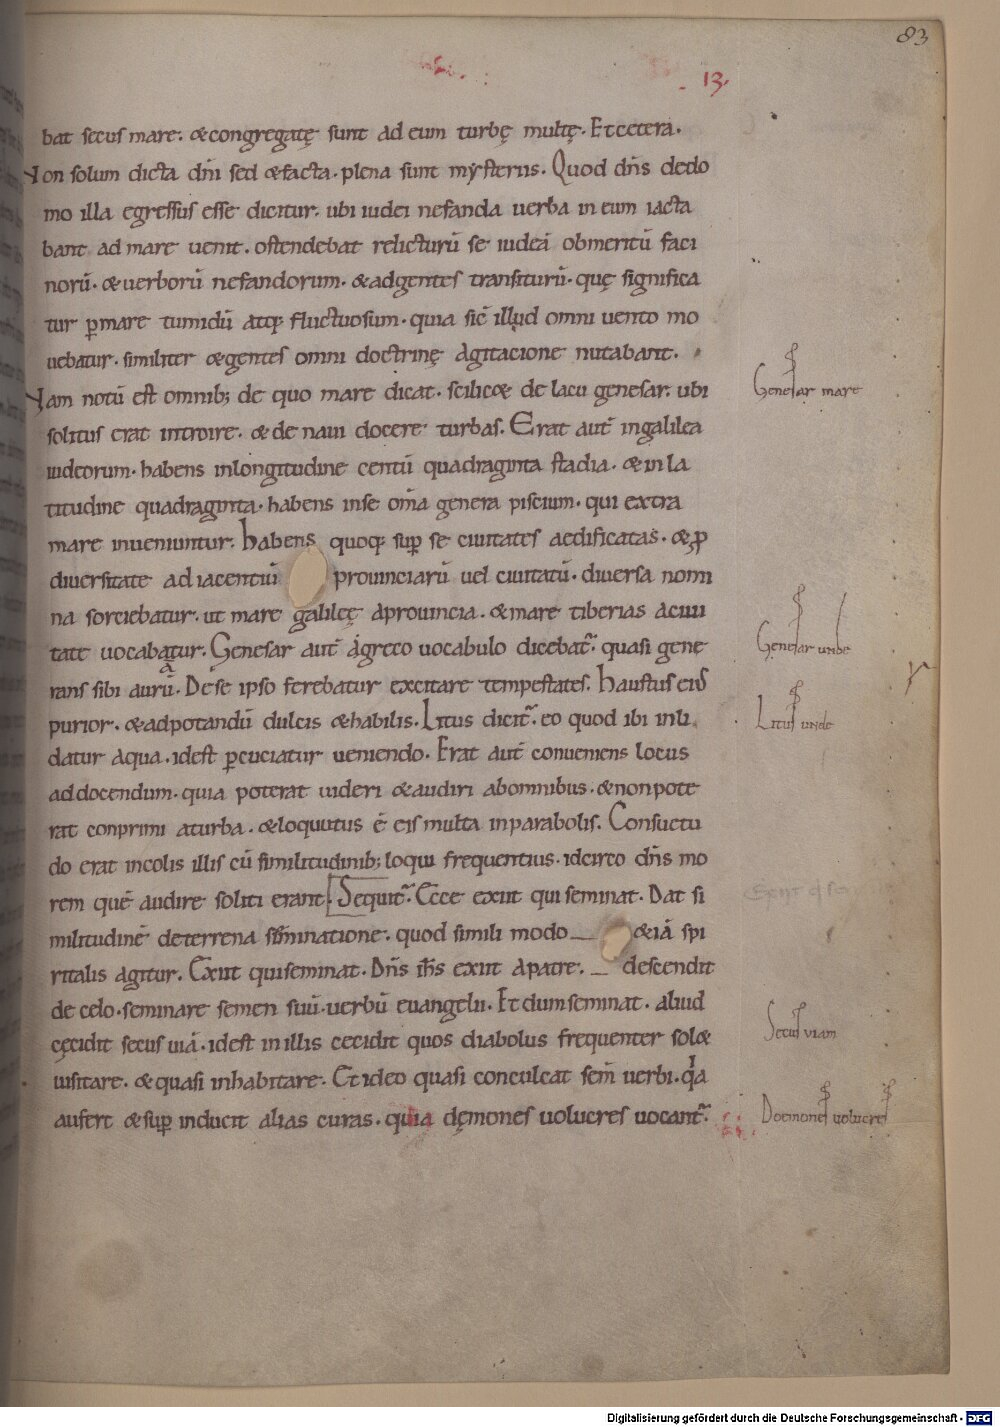 83
13.
bat secus mare. & congregatę sunt ad eum turbę multę. Et cetera.
Non solum dicta dñi sed & facta. plena sunt mysteriis. Quod dñs dedo
mo illa egressus esse dicitur. ubi iudei nefanda uerba in eum iacta
bant ad mare uenit. ostendebat relicturū se iudeā ob meritū faci
norū. & uerborū nefandorum. & ad gentes transiturū. quę significa
tur ꝑ mare tumidū atq; fluctuosum. quia sic̄ illud omni uento mo
uebatur. similiter & gentes omni doctrinę agitacione nutabant.
Nam notū est omnib; de quo mare dicat. scilic& de lacu genesar. ubi
solitus erat introire. & de naui docere turbas. Erat aut̄ in galilea
iudeorum. habens in longitudine centū quadraginta stadia. & in la
titudine quadraginta. habens in se om̄a genera piscium. qui extra
mare inueniuntur. habens quoq; sup̄ se ciuitates aedificatas. & ꝓ
diuersitate ad iacentiū prouinciarū uel ciuitatū. diuersa nomi
na sorciebatur. ut mare galileę a prouincia. & mare tiberias a ciui
tate uocabatur. Genesar aut̄ a greco uocabulo dicebat̃. quasi gene
rans sibi aurū. De se ipso ferebatur excitare tempestates. haustus eius
purior. & ad potandū dulcis & habilis. Litus dicit̃. eo quod ibi inli
datur aqua. id est ꝑcuciatur ueniendo. Erat aut̄ conueniens locus
ad docendum. quia poterat uideri & audiri ab omnibus. & non pote
rat conprimi a turba. & loquutus ē eis multa in parabolis. Consuetu
do erat incolis illis cū similitudinib; loqui frequentius. idcirco dñs mo
rem quē audire soliti erant. Sequit̃. Ecce exiit qui seminat. Dat si
militudinē de terrena seminatione. quod simili modo & iā spi
ritalis agitur. Exiit qui seminat. Dñs ih̄s exiit a patre. descendit
de celo. seminare semen suū. uerbū euangelii. Et dum seminat. aliud
cęcidit secus uiā. id est in illis cecidit quos diabolus frequenter sol&
uisitare. & quasi inhabitare. Et ideo quasi conculcat sem̄ uerbi. q̇a
aufert & sup̄ inducit alias curas. quia dęmones uolucres uocant̃.
Genesar mare
Genesar unde
Litus unde
Secus viam
Doemones uolucres
Digitalisierung gefördert durch die Deutsche Forschungsgemeinschaft - DFG